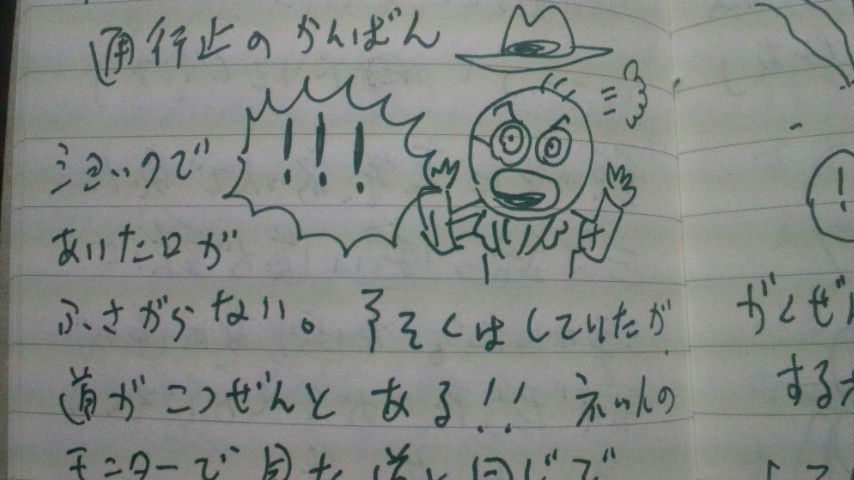 通行止のかんばん
!!!
ショックで
あいた口が
ふさがらない。予そくはしていたが
道がこつぜんと ある!! ネットの
モニターで見た道と同じで
!
がくぜん
する